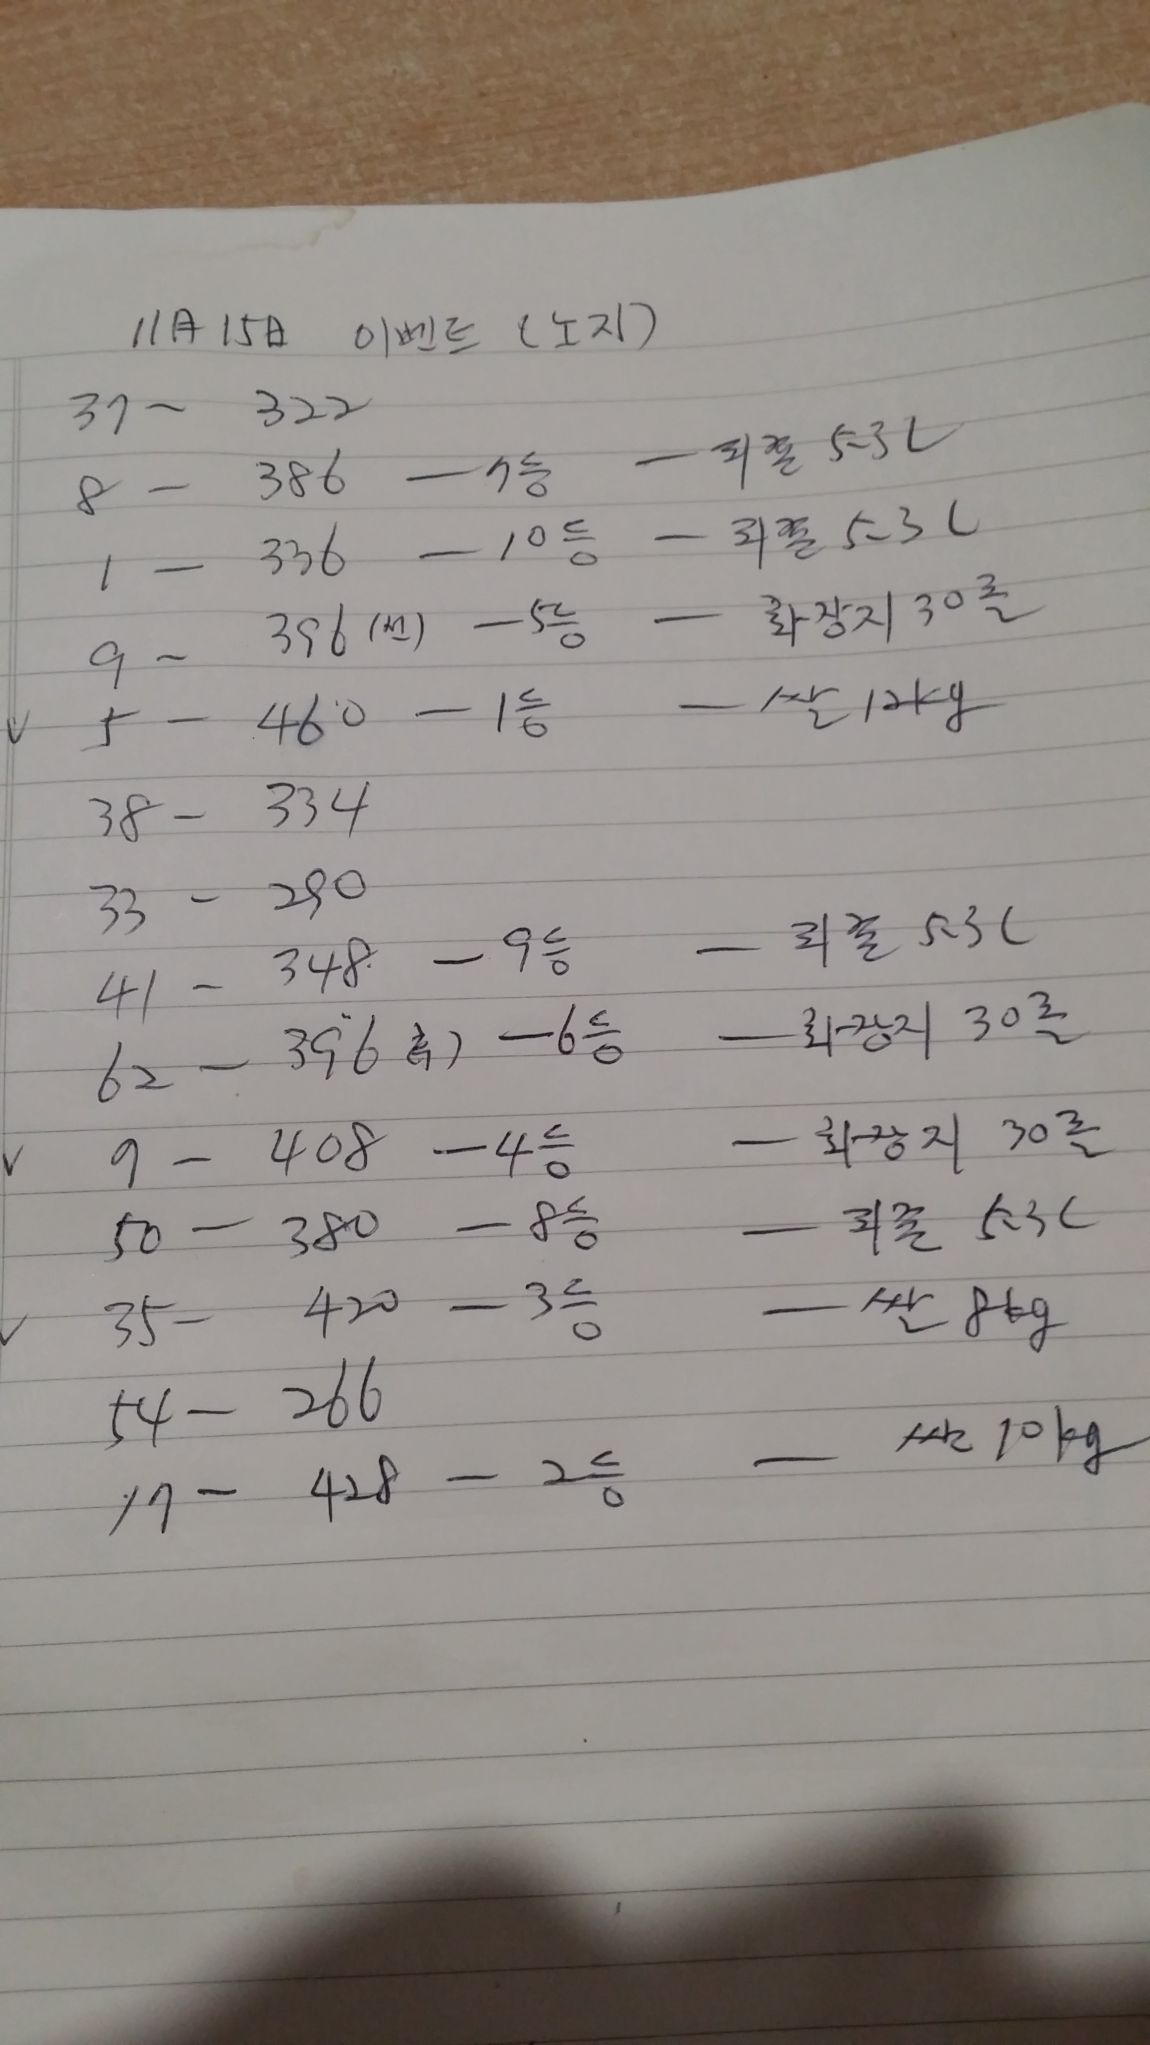 11月 15日 이벤트 (노지)
37 - 322
8 - 386 - 7등 - 퍼풀 5.3L
1 - 336 - 10등 - 퍼풀 5.3L
9 - 396 (선) - 5등 - 화장지 30롤
✓ 5 - 460 - 1등 - 쌀 12kg
38 - 334
33 - 290
41 - 348 - 9등 - 퍼풀 5.3L
62 - 396 후) - 6등 - 화장지 30롤
✓ 9 - 408 - 4등 - 화장지 30롤
50 - 380 - 8등 - 퍼풀 5.3L
✓ 35 - 420 - 3등 - 쌀 8kg
54 - 266
17 - 428 - 2등 - 쌀 10kg